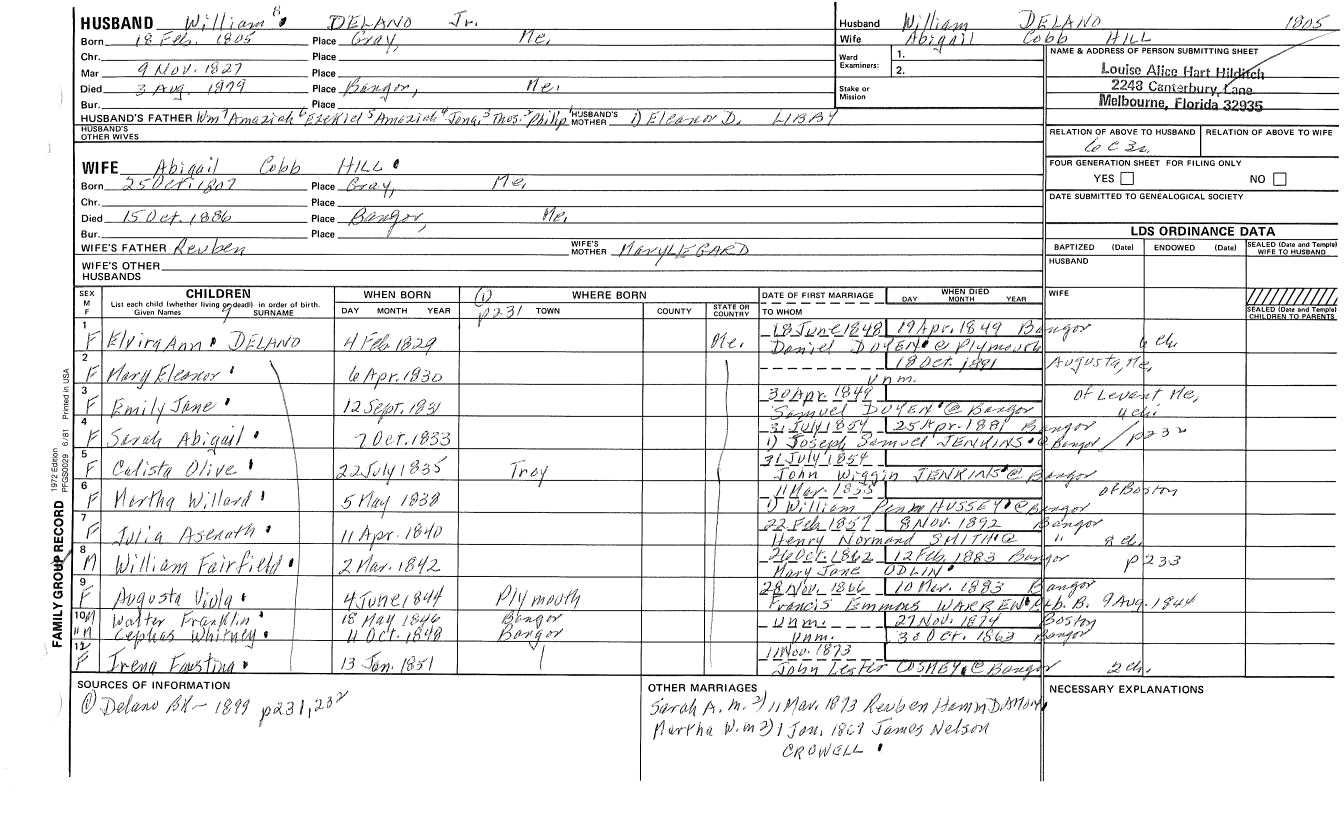 HUSBAND William 8 DELANO Jr.
Born 18 Feb. 1805 Place Gray, Me,
Chr. Place
Mar 9 Nov. 1827 Place
Died 3 Aug. 1879 Place Bangor, Me.
Bur. Place
HUSBAND'S FATHER Wm 7 Amaziah 6 Ezekiel 5 Amaziah 4 Jona. 3 Thos. 2 Philip 1 HUSBAND'S MOTHER 1) Eleanor D. LIBBY
HUSBAND'S OTHER WIVES
Husband William DELANO 1805
Wife Abigail Cobb HILL
Ward Examiners: 1.
2.
Stake or Mission
NAME & ADDRESS OF PERSON SUBMITTING SHEET
Louise Alice Hart Hilditch
2248 Canterbury Lane
Melbourne, Florida 32935
RELATION OF ABOVE TO HUSBAND RELATION OF ABOVE TO WIFE
6 C 3r.
FOUR GENERATION SHEET FOR FILING ONLY
YES NO
DATE SUBMITTED TO GENEALOGICAL SOCIETY
WIFE Abigail Cobb HILL
Born 25 Oct. 1807 Place Gray, Me,
Chr. Place
Died 15 Oct. 1886 Place Bangor, Me,
Bur. Place
WIFE'S FATHER Reuben WIFE'S MOTHER Mary LEGARD
WIFE'S OTHER HUSBANDS
LDS ORDINANCE DATA
BAPTIZED (Date) ENDOWED (Date) SEALED (Date and Temple) WIFE TO HUSBAND
HUSBAND
WIFE
SEALED (Date and Temple) CHILDREN TO PARENTS
SEX M F CHILDREN WHEN BORN (1) WHERE BORN DATE OF FIRST MARRIAGE WHEN DIED
List each child (whether living or dead) in order of birth. Given Names SURNAME DAY MONTH YEAR p231 TOWN COUNTY STATE OR COUNTRY TO WHOM DAY MONTH YEAR
1 F Elvira Ann DELANO 4 Feb 1829 Me. 18 June 1848 19 Apr. 1849 Bangor
Daniel DOYEN @ Plymouth 6 ch.
2 F Mary Eleanor 6 Apr. 1830 18 Oct. 1891 Augusta, Me,
Unm.
3 F Emily Jane 12 Sept. 1831 30 Apr 1849 of Levant Me,
Samuel DOYEN @ Bangor 4 ch.
4 F Sarah Abigail 7 Oct. 1833 31 July 1854 25 Apr. 1881 Bangor
1) Joseph Samuel JENKINS @ Bangor / p232
5 F Calista Olive 22 July 1835 Troy 31 July 1854
John Wiggin JENKINS @ Bangor
6 F Martha Willard 5 May 1838 11 Mar. 1855 of Boston
1) William Penn HUSSEY @ Bangor
7 F Julia Asenath 11 Apr. 1840 22 Feb 1857 8 Nov. 1892 Bangor
Henry Normand SMITH @ " 8 ch.
8 M William Fairfield 2 Mar. 1842 26 Oct. 1862 12 Feb. 1883 Bangor p233
Mary Jane ODLIN
9 F Augusta Viola 4 June 1844 Plymouth 28 Nov. 1866 10 Mar. 1883 Bangor
Francis Emmons WARREN b. B. 9 Aug. 1844
10 M Walter Franklin 18 May 1846 Bangor Unm. 27 Nov. 1874 Boston
11 M Cephas Whitney 11 Oct. 1848 Bangor Unm. 30 Oct. 1863 Bangor
12 F Irena Faustina 13 Jan. 1851 11 Nov. 1873
John Lester COSMEY @ Bangor 2 ch.
SOURCES OF INFORMATION
(1) Delano BK - 1899 p231, 232
OTHER MARRIAGES
Sarah A. m. 2) 11 Mar. 1873 Reuben
Martha W. m 2) 1 Jan. 1867 James Nelson
CROWELL
NECESSARY EXPLANATIONS
FAMILY GROUP RECORD 1972 Edition PFGS0029 6/81 Printed in USA